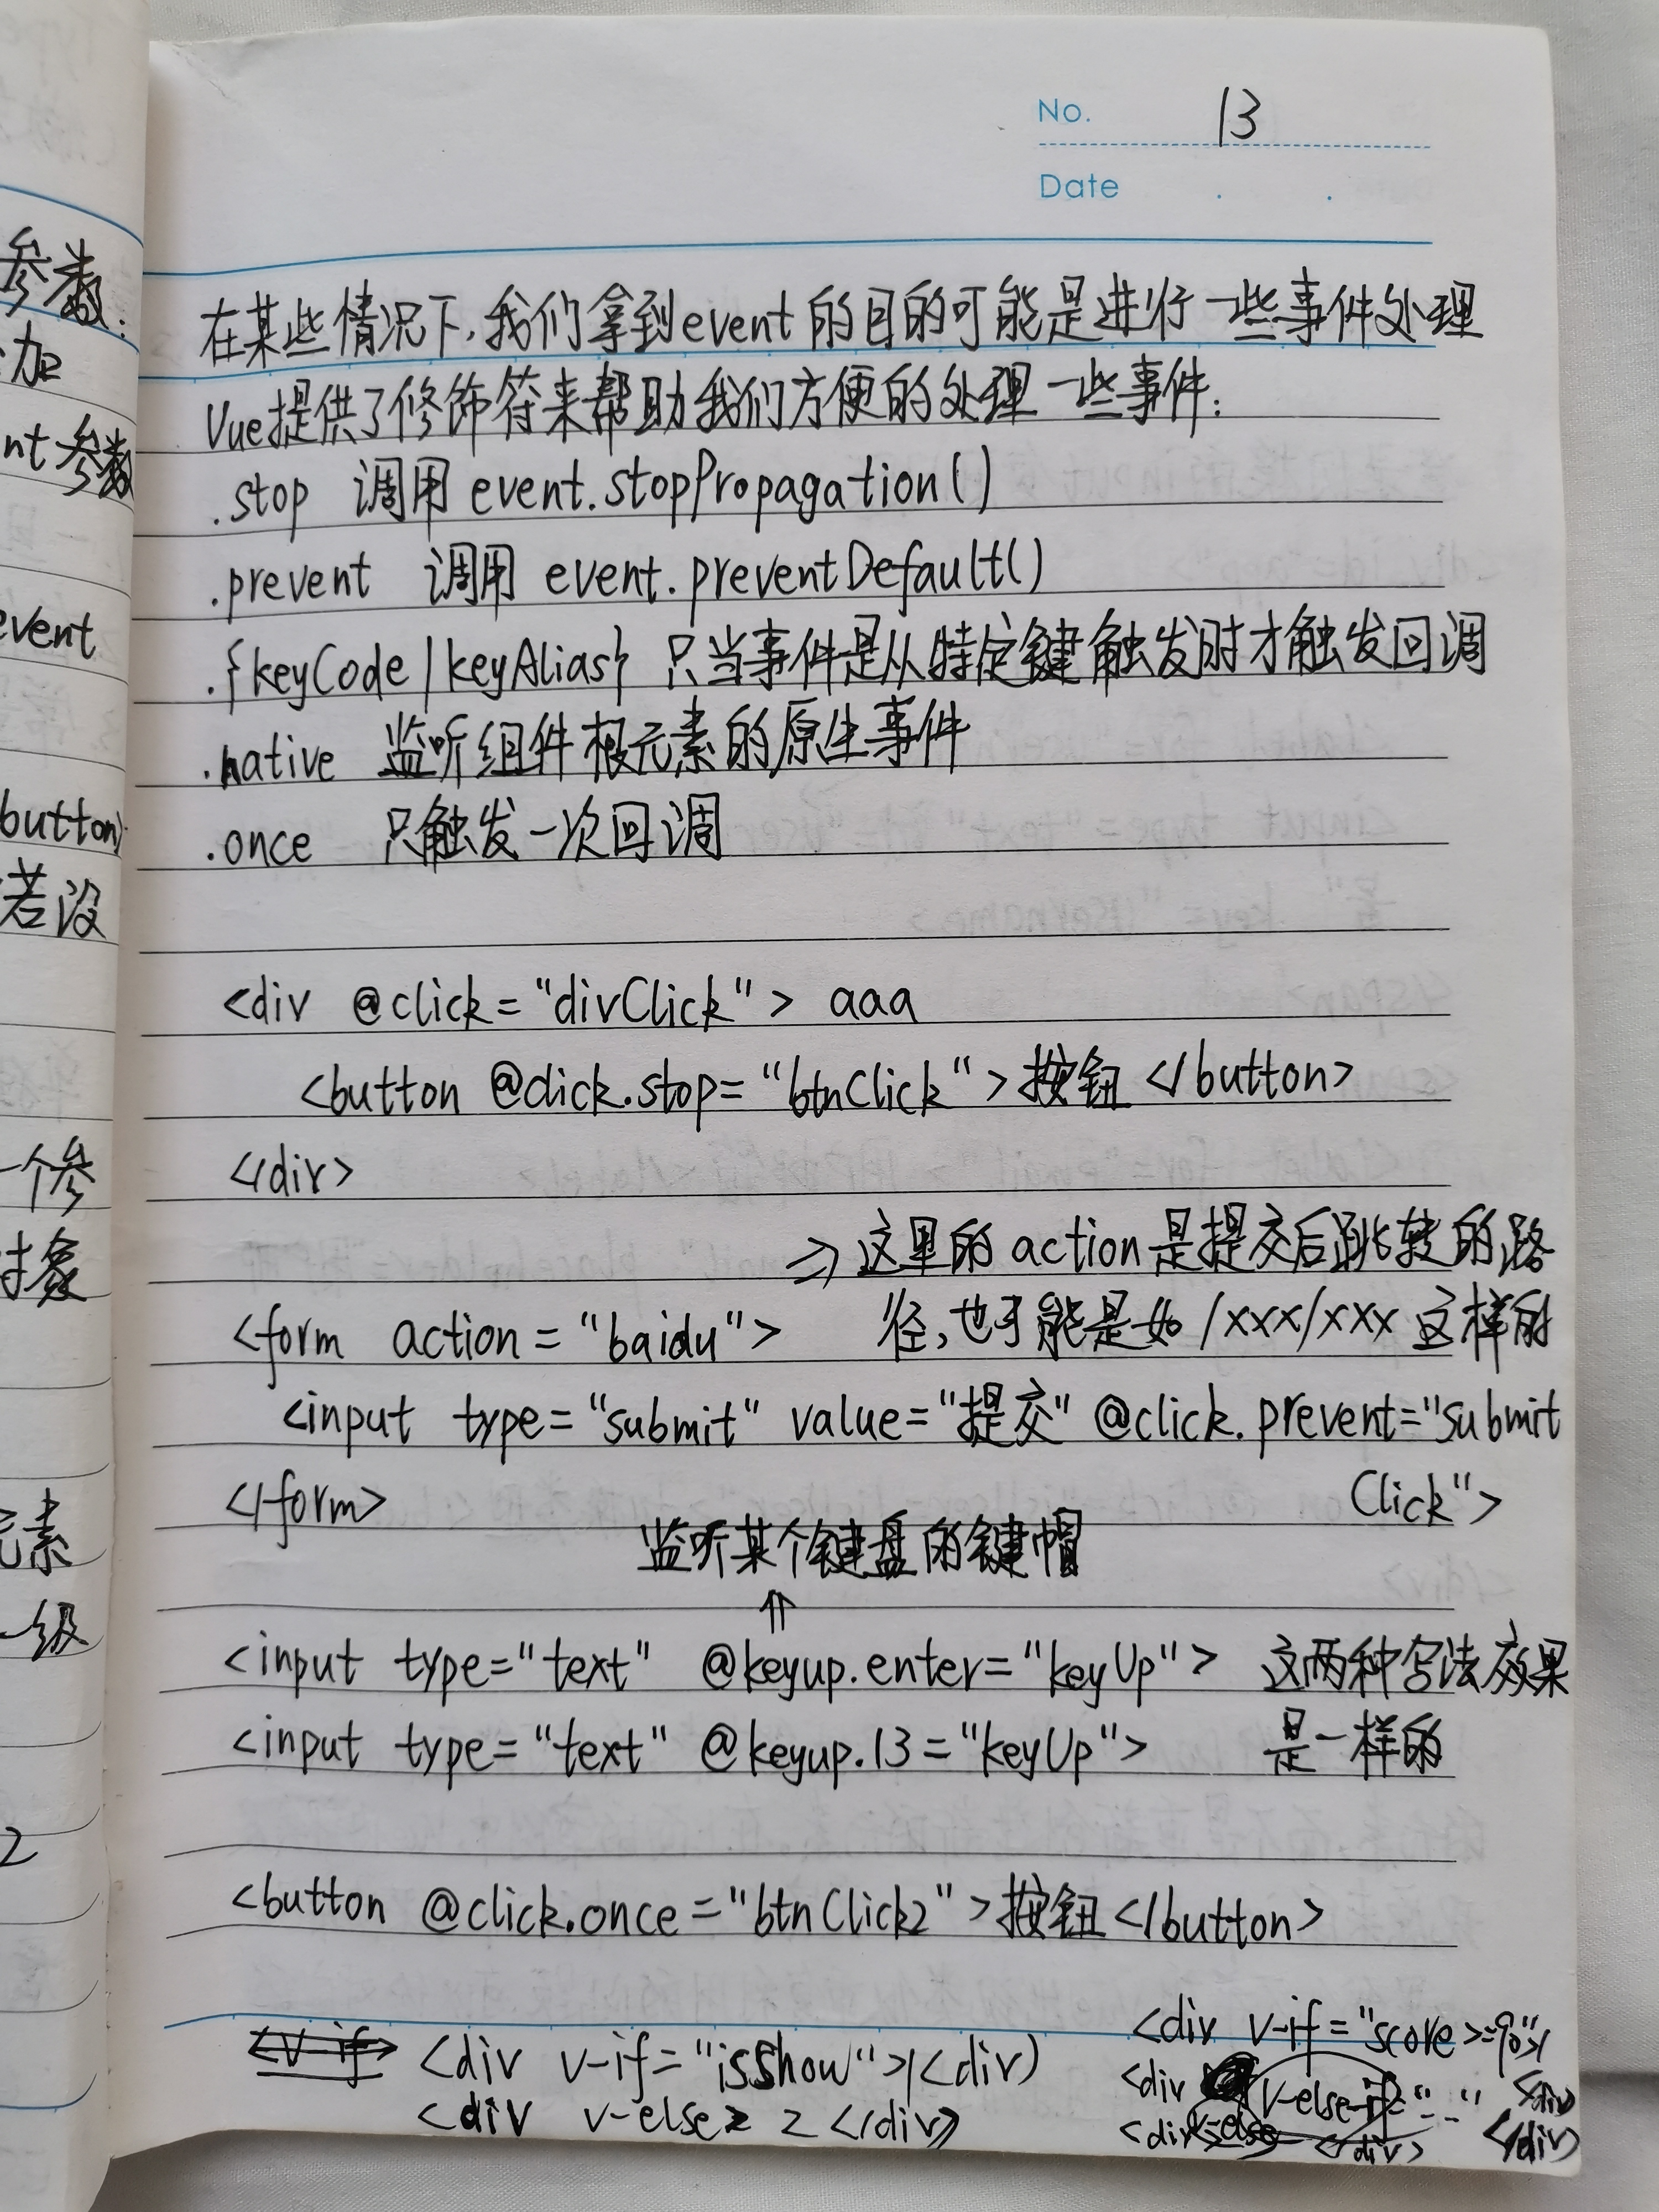 No. 13
Date . .
在某些情况下,我们拿到event的目的可能是进行一些事件处理
Vue提供了修饰符来帮助我们方便的处理一些事件:
.stop 调用 event.stopPropagation()
.prevent 调用 event.preventDefault()
.{keyCode | keyAlias} 只当事件是从特定键触发时才触发回调
.native 监听组件根元素的原生事件
.once 只触发一次回调
<div @click="divClick"> aaa
<button @click.stop="btnClick">按钮</button>
</div>
⇒ 这里的action是提交后跳转的路
<form action="baidu"> 径,也可能是如/xxx/xxx这样的
<input type="submit" value="提交" @click.prevent="submit
</form> Click">
监听某个键盘的键帽
⇑
<input type="text" @keyup.enter="keyUp"> 这两种写法效果
<input type="text" @keyup.13="keyUp"> 是一样的
<button @click.once="btnClick2">按钮</button>
<div v-if="isShow">1<div>
<div v-else> 2 </div>
<div v-if="score>=90">1
<div v-else-if="--" <div>
<div v-else </div> </div>
参数:
加
nt 参数
event
button)
若设
一个参
对象
元素
一级
2